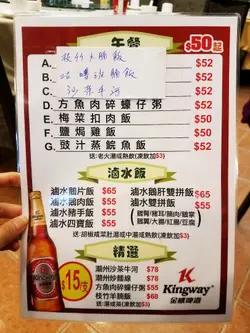 午餐 $50起
A. 枝竹火腩飯 $52
B. 咕嚕班腩飯 $52
C. 沙茶牛河 $52
D. 方魚肉碎蠔仔粥 $52
E. 梅菜扣肉飯 $50
F. 鹽焗雞飯 $50
G. 豉汁蒸鯇魚飯 $52
送:老火湯或熱飲(凍飲加$3)
滷水飯
滷水鵝片飯 $65
滷水鵝肉飯 $55
滷水豬手飯 $55
滷水四寶飯 $55
滷水鵝肝雙拼飯 $65
滷水雙拼飯 $55
送:胡椒咸菜肚湯或中湯或熱飲(凍飲加$3)
精選
潮州沙茶牛河 $78
潮州炒麵線 $78
方魚肉碎蠔仔粥 $55
枝竹羊腩飯 $68
送:湯或茶(凍飲加$3)
$15/支
Kingway
金威啤酒